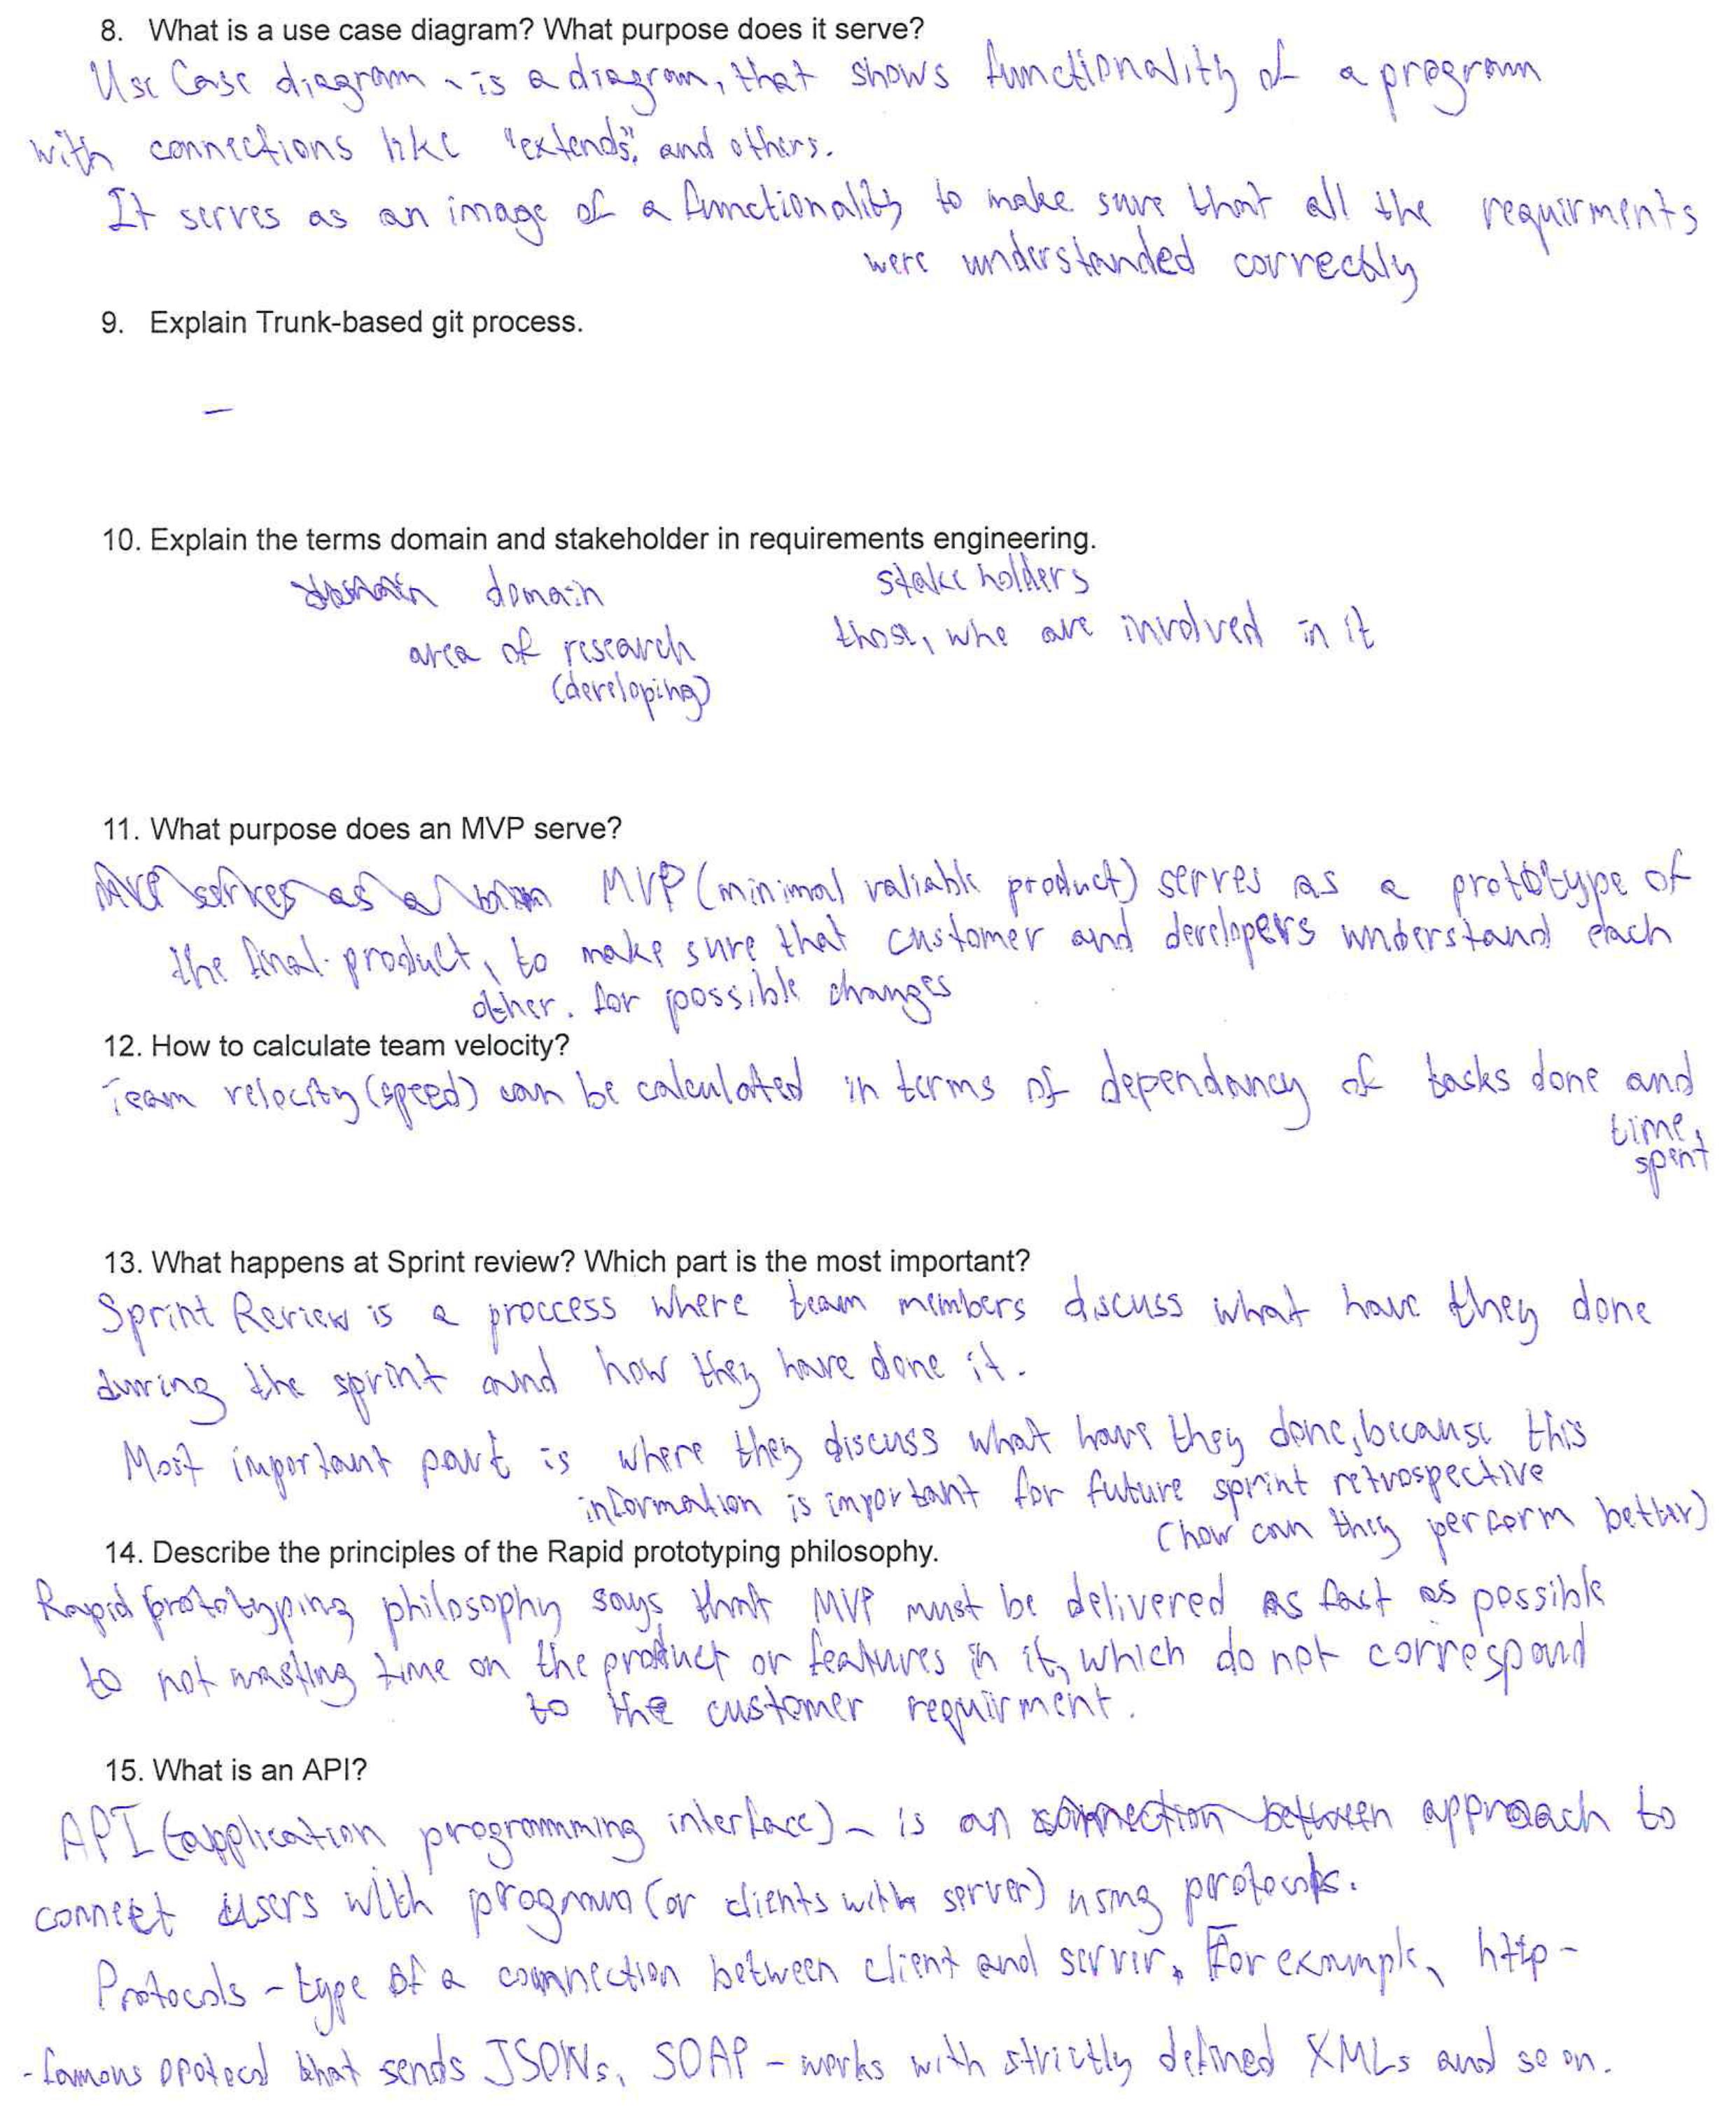 8. What is a use case diagram? What purpose does it serve?
Use Case diagram - is a diagram, that shows functionality of a program
with connections like "extends", and others.
It serves as an image of a functionality to make sure that all the requirments
were understanded correctly
9. Explain Trunk-based git process.
-
10. Explain the terms domain and stakeholder in requirements engineering.
domain stakeholders
area of research those, who are involved in it
(developing)
11. What purpose does an MVP serve?
MVP serves as a MVP (minimal valiable product) serves as a prototype of
the final product, to make sure that customer and developers understand each
other. for possible changes
12. How to calculate team velocity?
Team velocity (speed) can be calculated in terms of dependancy of tasks done and
time
spent
13. What happens at Sprint review? Which part is the most important?
Sprint Review is a proccess where team members discuss what have they done
during the sprint and how they have done it.
Most important part is where they discuss what have they done, because this
information is important for future sprint retrospective
(how can they perform better)
14. Describe the principles of the Rapid prototyping philosophy.
Rapid prototyping philosophy says that MVP must be delivered as fast as possible
to not wasting time on the product or features in it, which do not correspond
to the customer requirment.
15. What is an API?
API (application programming interface) - is an connection between approach to
connect users with program (or clients with server) using protocols.
Protocols - type of a connection between client and server. For example, http -
- famous protocol that sends JSONs, SOAP - works with strictly defined XMLs and so on.